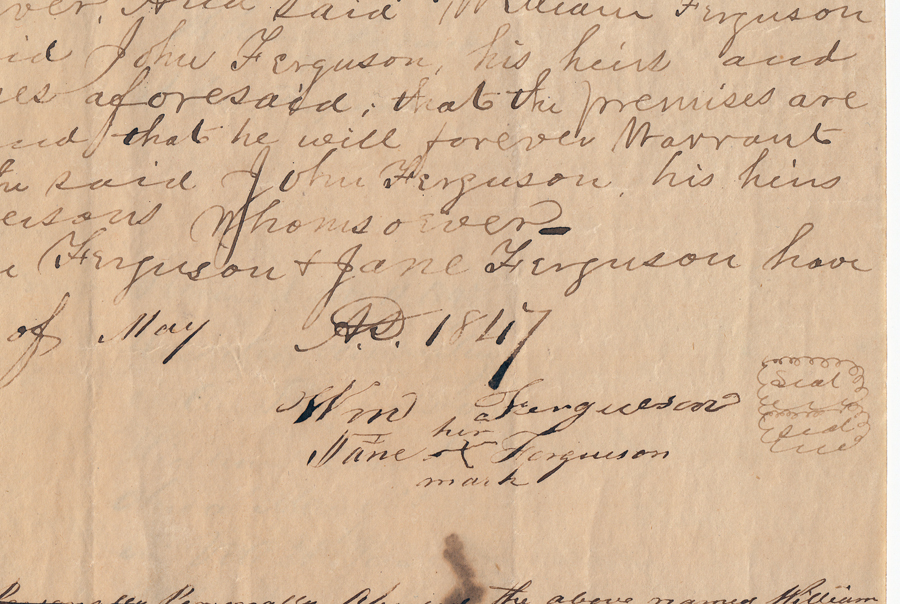 ver, And said William Ferguson
id John Ferguson, his heirs and
es aforesaid; that the premises are
and that he will forever Warrant
said John Ferguson, his heirs
ersons Whomsoever
Ferguson & Jane Ferguson have
of May A.D. 1847
Wm Ferguson
her
Jane X Ferguson
mark
Seal
Seal
the above named William